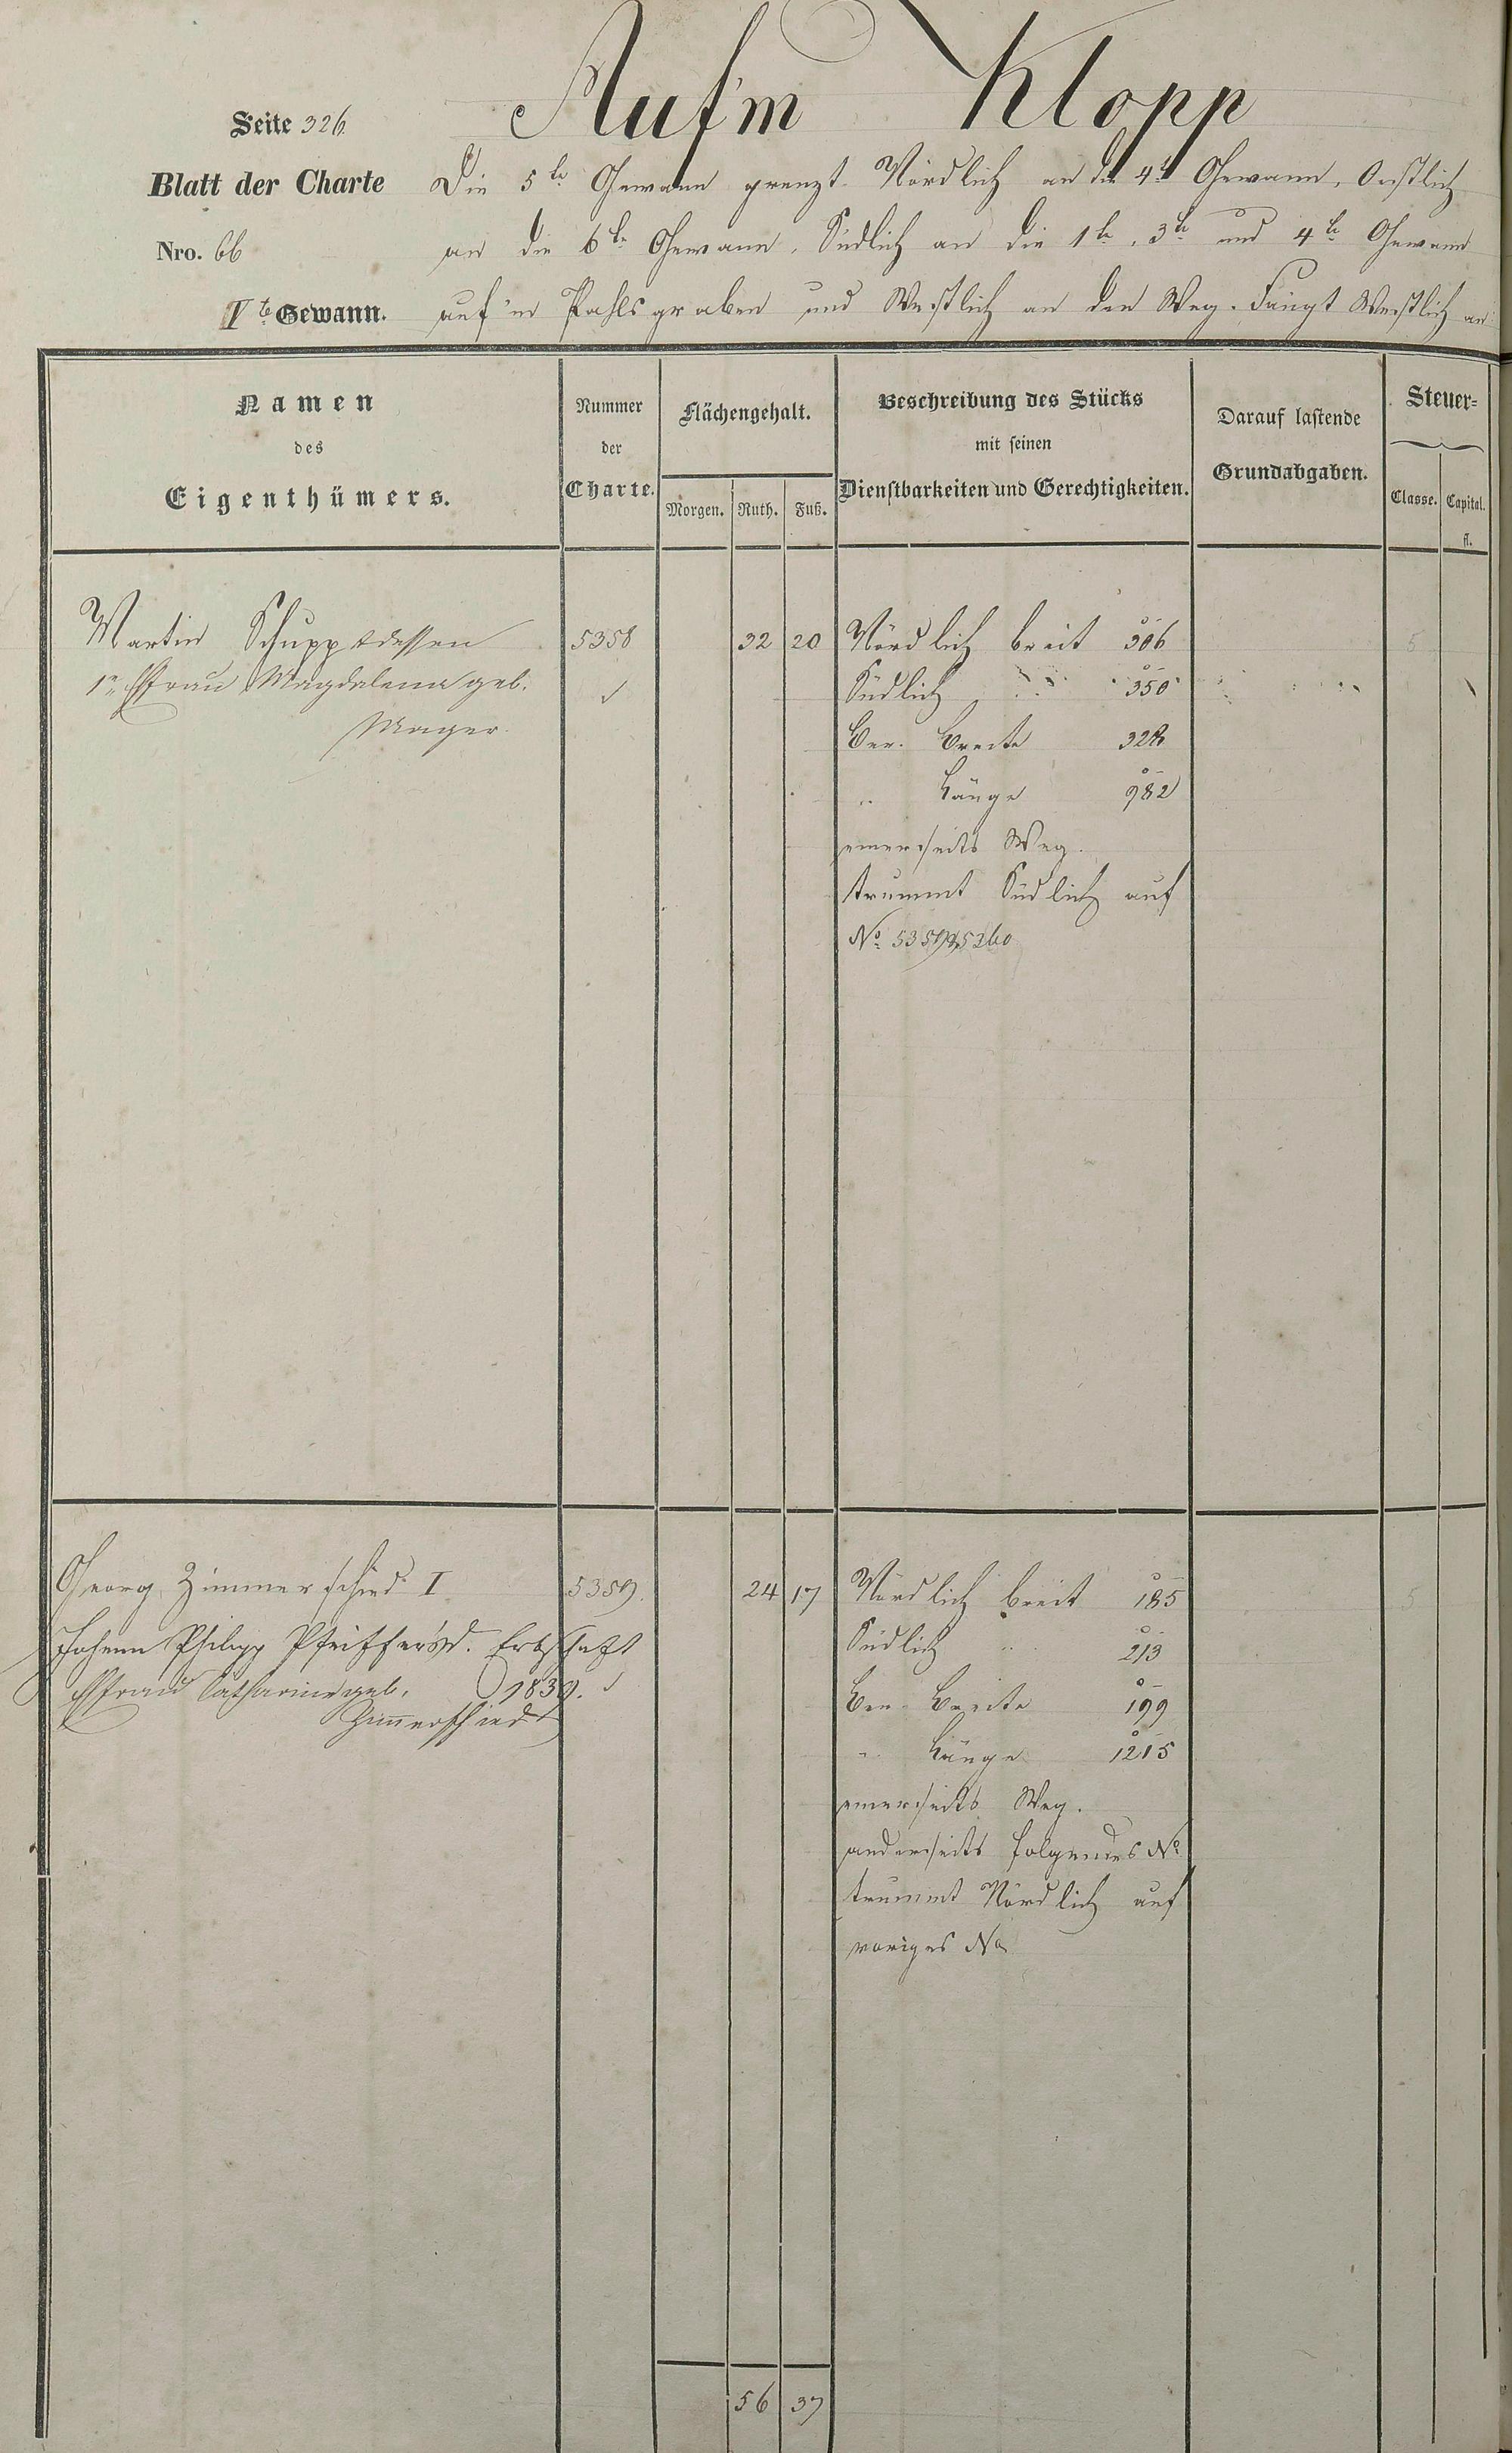 Auf'm Klopp
Seite 326.
Blatt der Charte
Nro. 66
Vte Gewann.
Die 5te Gewann grenzt Nördlich an die 4te Gewann, Oestlich
an die 6te Gewann, Südlich an die 1te, 3te und 4te Gewann
auf'm Pahlsgraben und Westlich an den Weg. Fängt Westlich an
Namen
des
Eigenthümers.
Nummer
der
Charte.
Flächengehalt.
Morgen. Ruth. Fuß.
Beschreibung des Stücks
mit seinen
Dienstbarkeiten und Gerechtigkeiten.
Darauf lastende
Grundabgaben.
Steuer=
Classe. Capital.
fl.
Martin Schupp & dessen 5358 32 20 Nördlich breit 306 5
1r Ehfrau Magdalena geb. Südlich " 350
Mager. Ber. Breite 328
" Länge 982
einerseits Weg.
trummt Südlich auf
No. 5359 & 5360
Georg Zimmerschied I 5359. 24 17 Nördlich breit 185 5
Johann Philipp Pfeiffer's Erbschaft Südlich " 213
Ehfrau Catharine geb. 1839. Ber. Breite 199
Zimmerschied " Länge 1215
einerseits Weg.
anderseits folgendes No
trummt Nördlich auf
voriges No
56 37